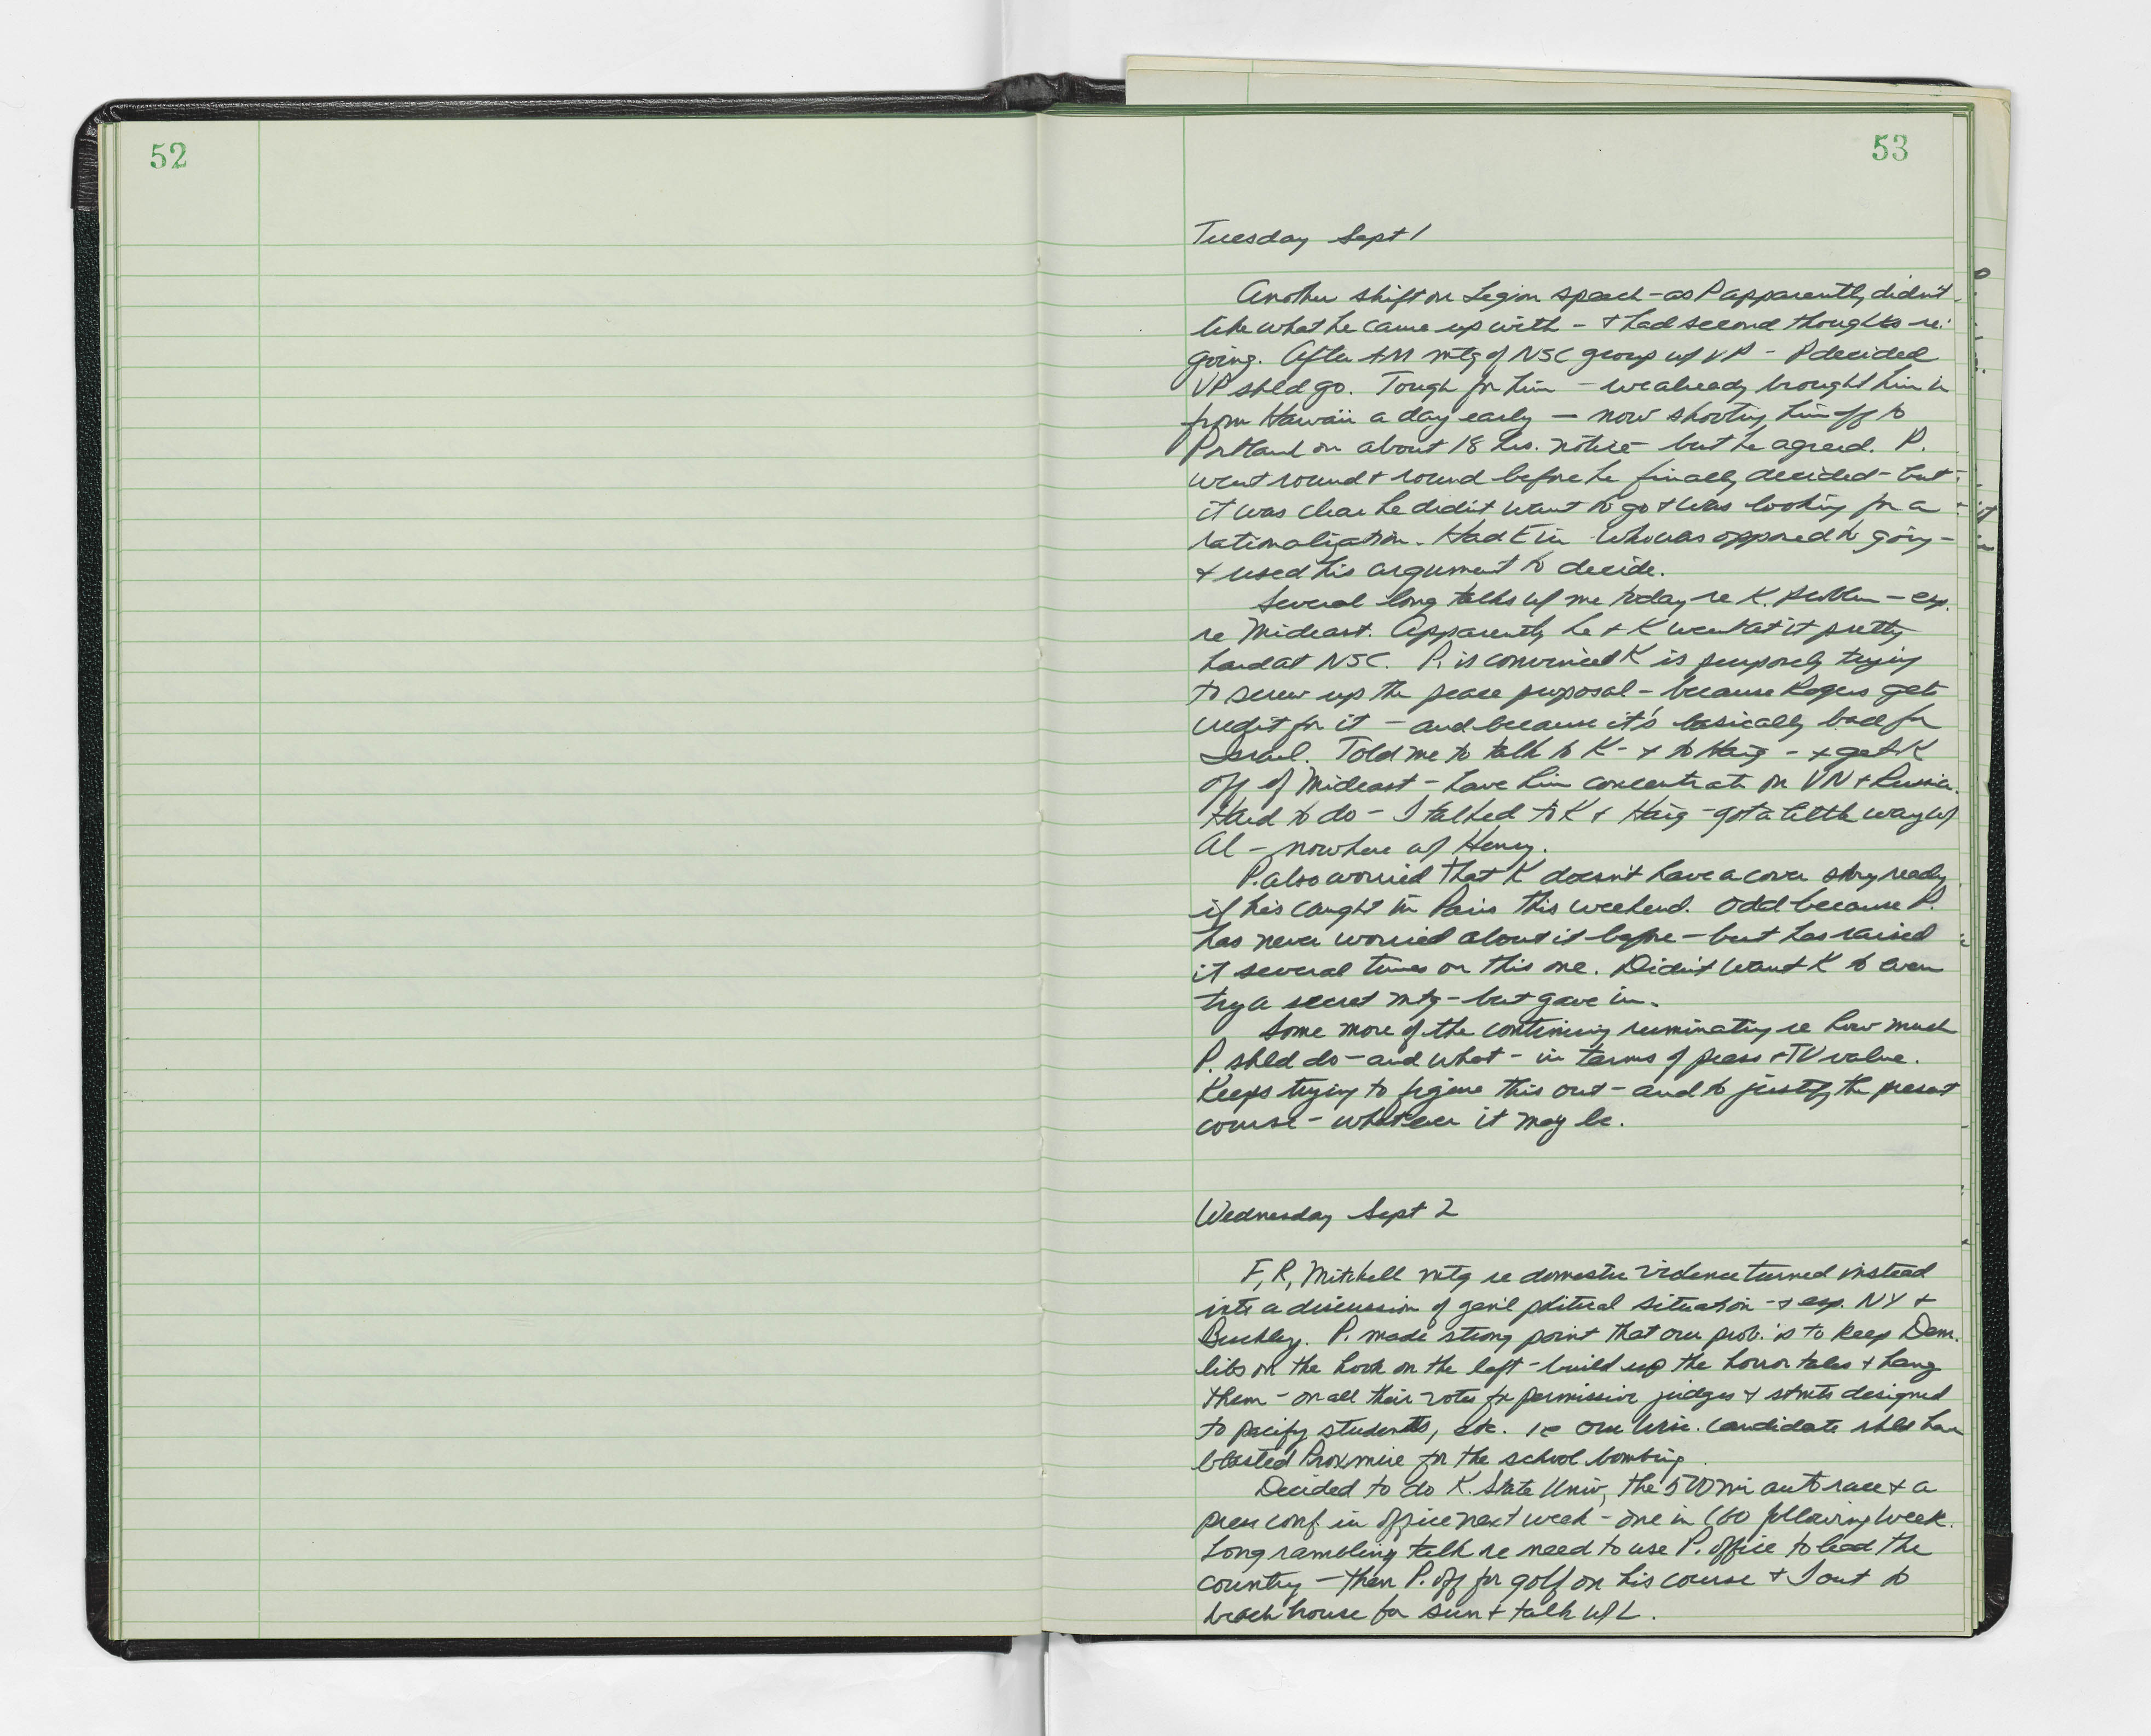 52
53
Tuesday Sept 1
Another shift on Legion speech - as P apparently didn't
like what he came up with - + had second thoughts re:
going. After AM mtg of NSC group w/ VP - P decided
VP shld go. Tough for him - we already brought him in
from Hawaii a day early - now shooting him off to
Portland on about 18 hrs. notice - but he agreed. P.
went round + round before he finally decided - but
it was clear he didn't want to go + was looking for a
rationalization. Had E in who was opposed to going -
+ used his argument to decide.
Several long talks w/ me today re K. problem - esp.
re Mideast. Apparently he + K went at it pretty
hard at NSC. P. is convinced K is purposely trying
to screw up the peace proposal - because Rogers gets
credit for it - and because it's basically bad for
Israel. Told me to talk to K - + to Haig - + get K
off of Mideast - have him concentrate on VN + Russia.
Hard to do - I talked to K + Haig - got a little way w/
Al - nowhere w/ Henry.
P. also worried that K doesn't have a cover story ready
if he's caught in Paris this weekend. Odd because P.
has never worried about it before - but has raised
it several times on this one. Didn't want K to even
try a secret mtg - but gave in.
Some more of the continuing ruminating re how much
P. shld do - and what - in terms of press + TV value.
Keeps trying to figure this out - and to justify the present
course - whatever it may be.
Wednesday Sept 2
F, R, Mitchell mtg re domestic violence turned instead
into a discussion of gen'l political situation - + esp. NY +
Buckley. P. made strong point that our prob. is to keep Dem.
libs on the hook on the left - build up the horror tales + hang
them - on all their votes for permissive judges + stmts designed
to pacify students, etc. ie our Wisc. candidate shld have
blasted Proxmire for the school bombing.
Decided to do K. State Univ, the 500 mi auto race + a
press conf in office next week - one in Chgo following week.
Long rambling talk re need to use P. office to lead the
country - then P. off for golf on his course + I out to
beach house for sun + talk w/ L.